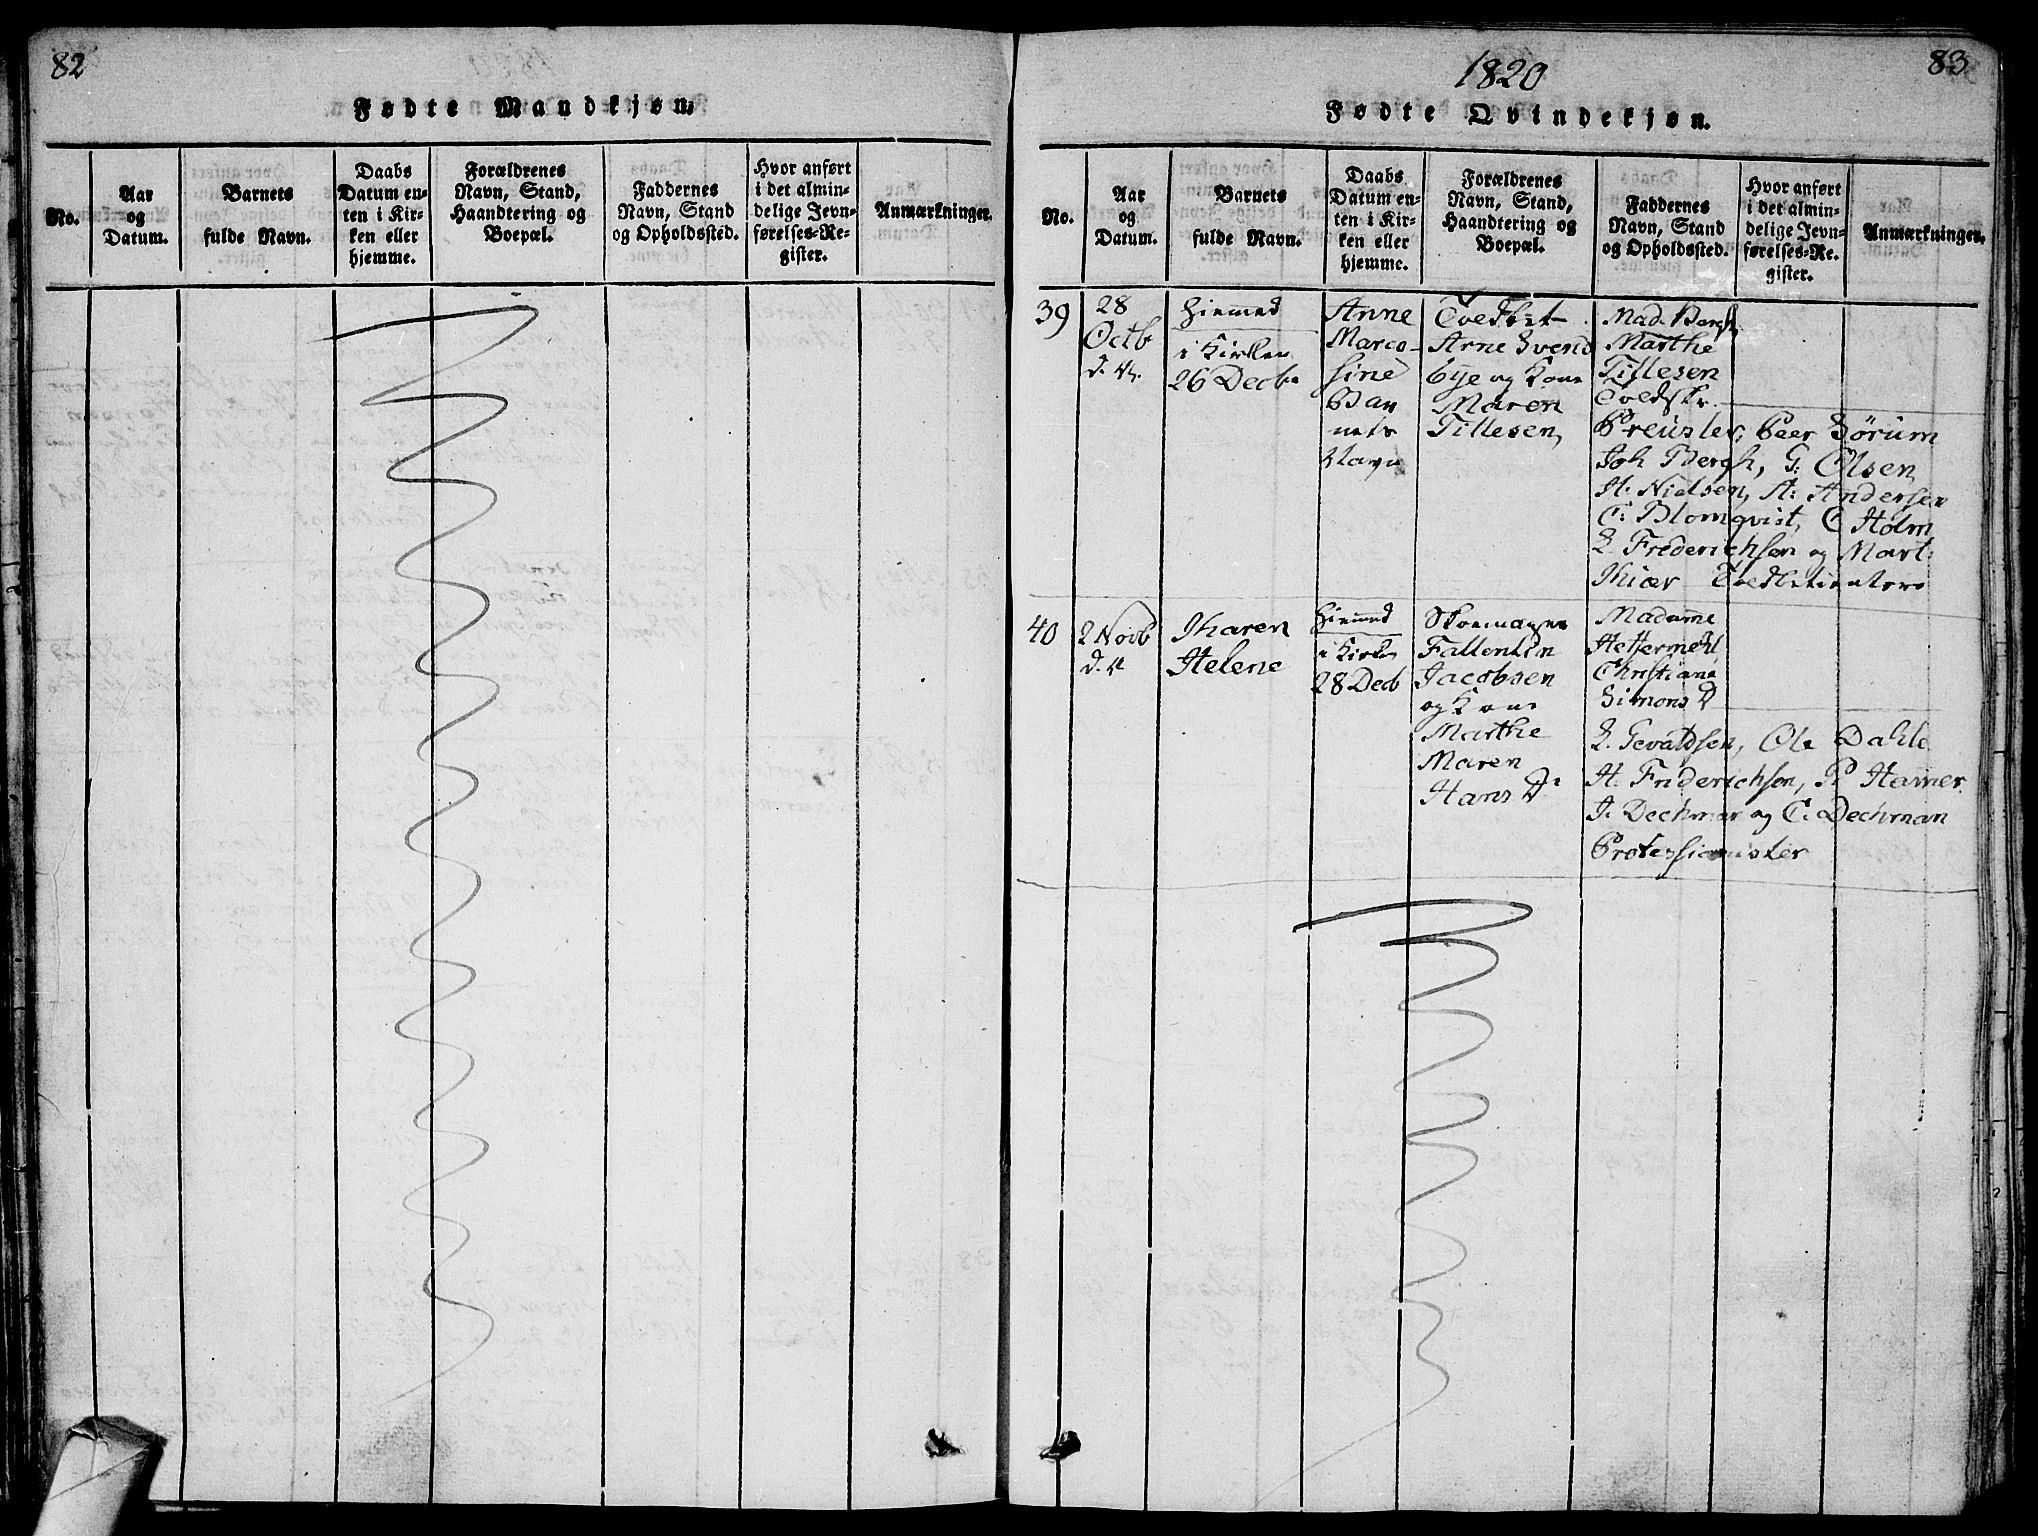 82
Fødte Mandkjøn.
No.
Aar
og
Datum.
Barnets
fulde Navn.
Daabs
Datum en-
ten i Kir-
ken eller
hjemme.
Forældrenes
Navn, Stand,
Haandtering og
Boepæl.
Faddernes
Navn, Stand
og Opholdssted.
Hvor anført
i det almin-
delige Jevn-
førelses-Re-
gister.
Anmærkninger.
1820
83
Fødte Qvindekjøn.
No.
Aar
og
Datum.
Barnets
fulde Navn.
Daabs
Datum en-
ten i Kir-
ken eller
hjemme.
Forældrenes
Navn, Stand,
Haandtering og
Boepæl.
Faddernes
Navn, Stand
og Opholdssted.
Hvor anført
i det almin-
delige Jevn-
førelses-Re-
gister.
Anmærkninger.
39
28
Octb
d. A.
Hiemed
i Kirken
26 Decbr
Anne
Marco-
sine
Bar
nets
Navn
Toedbet
Arne Svend
bye og Kone
Maren
Tillesen,
Mad. Bergh
Marthe
Tillesen
Toedskr.
Preusler, Peer Sörum
Joh Bergh, G: Olsen,
H. Nielsen, A: Andersen
C: Blomqvist, C Holm
L Frederichsen og Mart:
Thiær Toedbetienter
40
2 Novb
d. A
Tharen
Helene
Hiemed
i Kirken
28 Decb
Skoemager
Fallentin
Jacobsen
og Kone
Marthe
Maren
Hans D.
Madame
Hetjermehl
Christiane
Simons D
L. Gevaldsen, Ole Dahle
H. Friderichsen, P. Hamer
J. Dechman og C. Dechman
Professionister